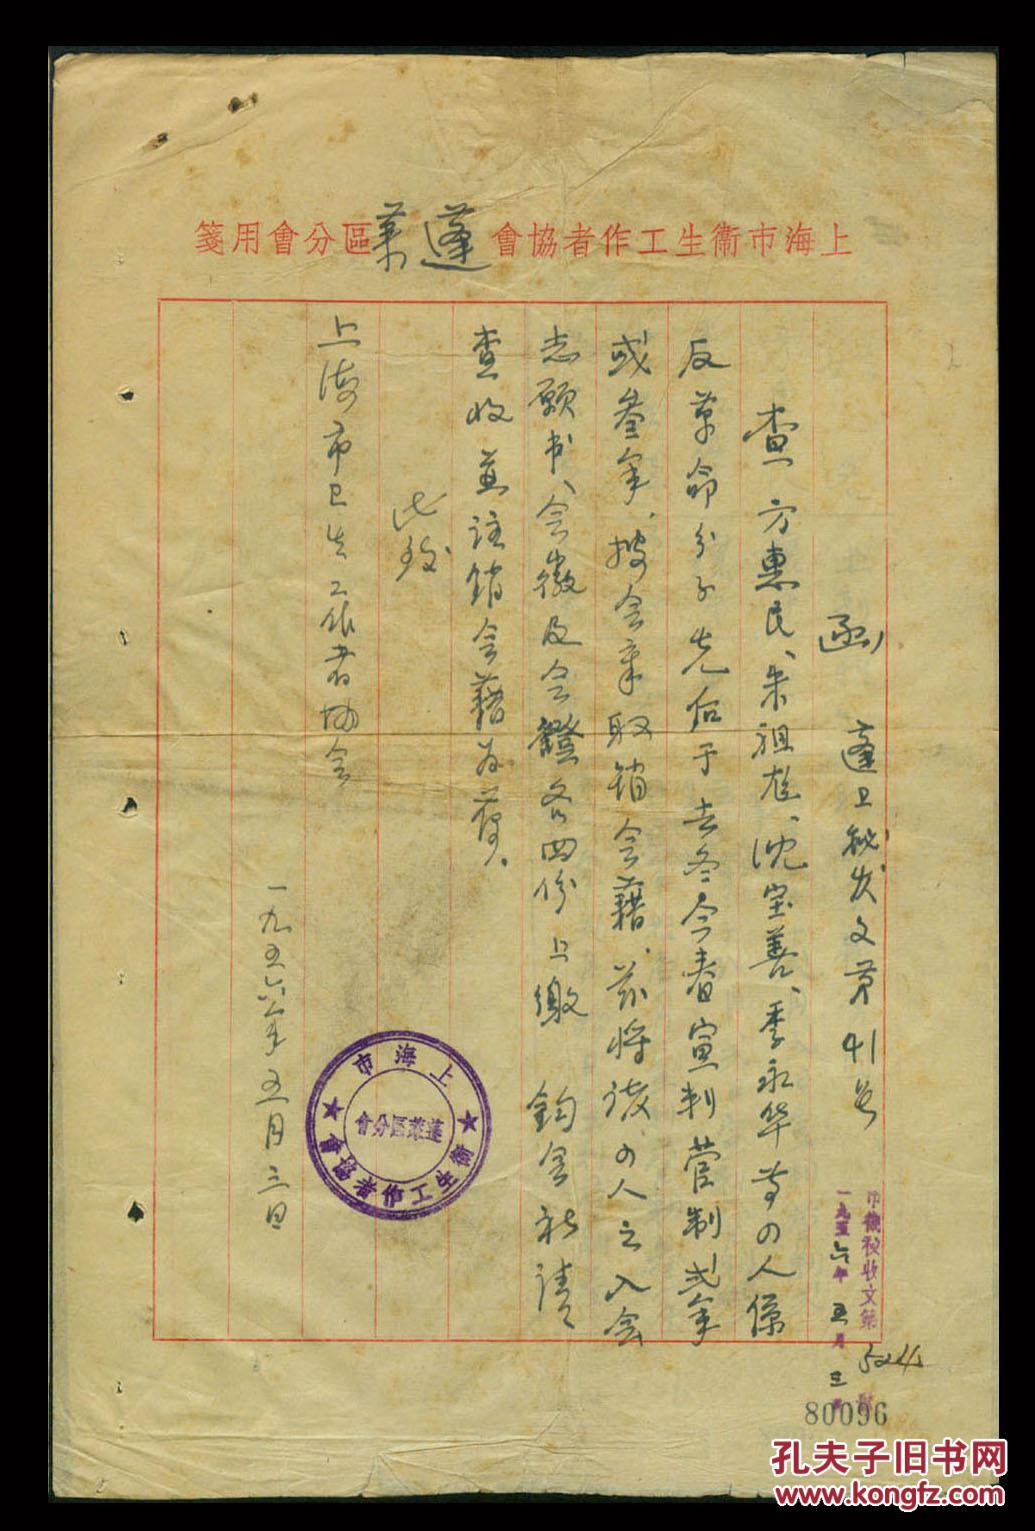 上海市衛生工作者協會蓬莱區分會用箋
函 蓬卫秘发文第41号
查方惠民、朱祖尨、沈宝善、季永华等四人係
反革命分子先后于去冬今春宣判管制弍年
或叁年,按会章取销会藉,兹将该四人之入会
志願书、会徽及会證各四份上缴 鈞会祈請
查收並註销会藉为荷。
此致
上海市卫生工作者协会
一九五六年五月三日
上海市
衛生工作者協會
蓬萊區分會
市衛秘收文第524
一九五六年五月三
80096
孔夫子旧书网
www.kongfz.com